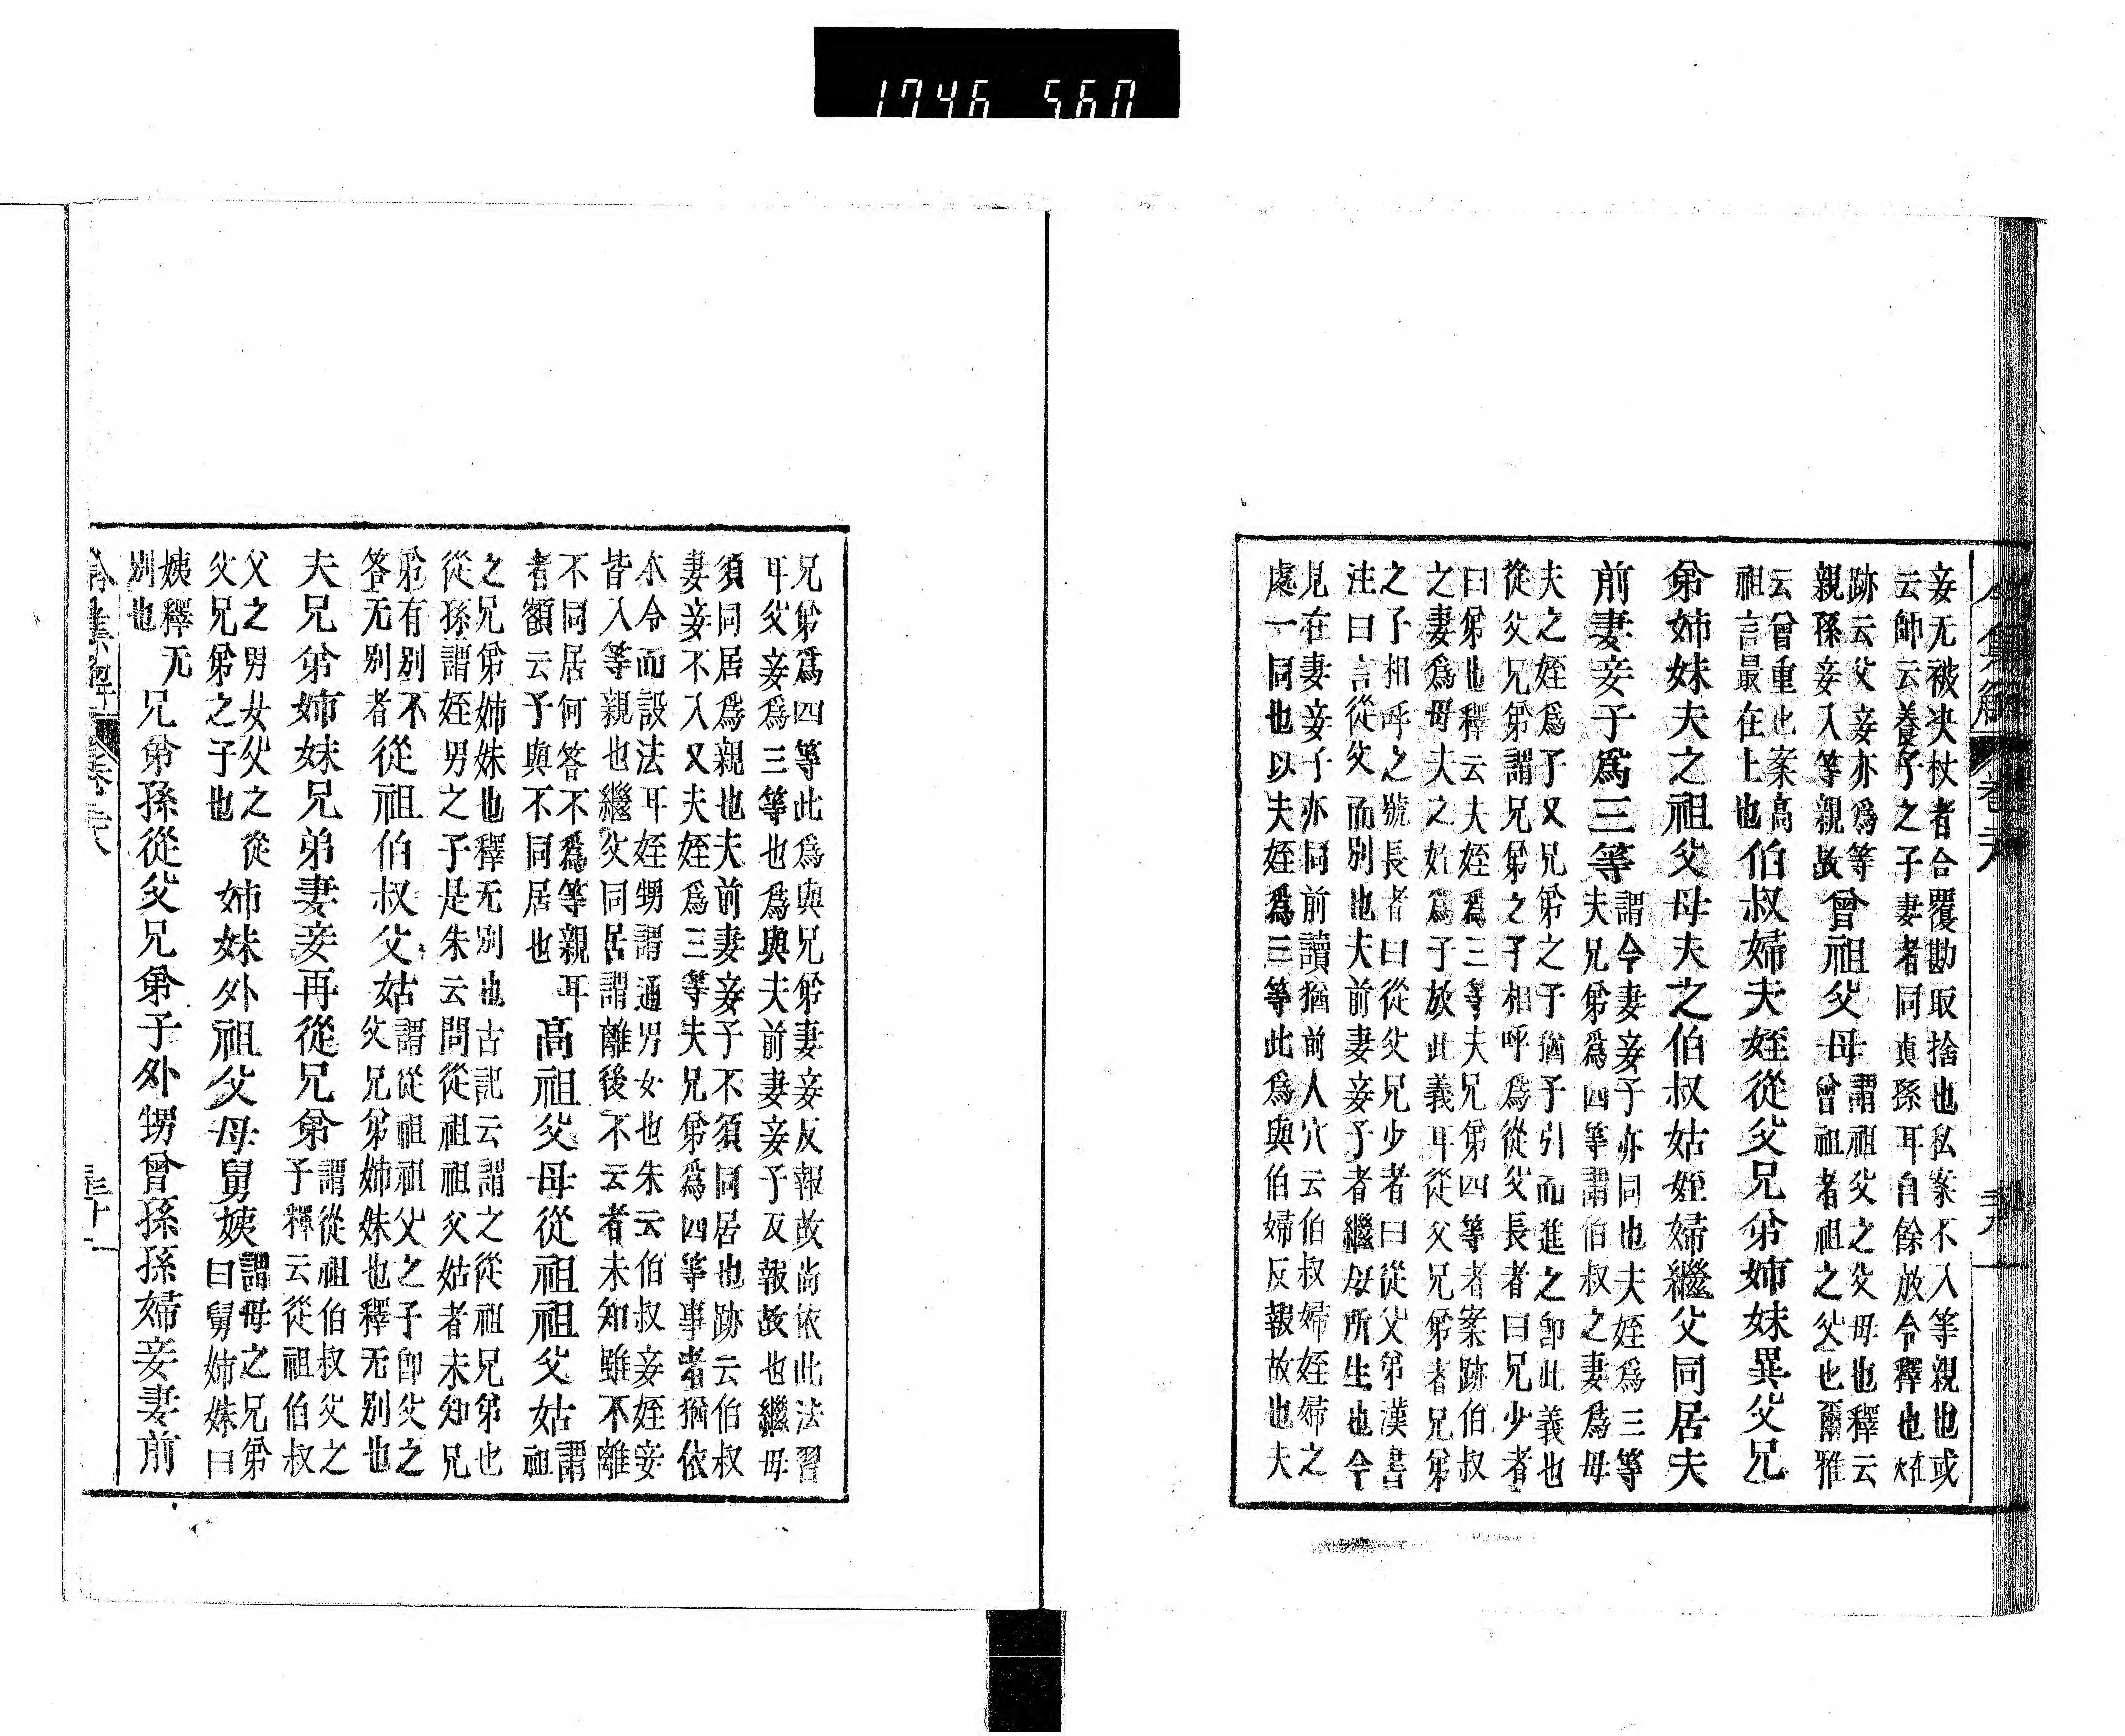 1746 560
妾无被决杖者合覆勘取捨也私案不入等親也或
云師云養子之子妻者同真孫耳自餘放令釋也
跡云父妾亦爲等
親孫妾入等親故曾祖父母謂祖父之父母也釋云
曾祖者祖之父也爾雅
云曾重也案高
祖言最在上也伯叔婦夫姪從父兄弟姉妹異父兄
弟姉妹夫之祖父母夫之伯叔姑姪婦繼父同居夫
前妻妾子爲三等謂今妻妾子亦同也夫姪爲三等
夫兄弟爲四等謂伯叔之妻爲母
夫之姪爲子又兄弟之子猶子引而進之卽此義也
從父兄弟謂兄弟之子相呼爲從父長者曰兄少者
曰弟也釋云夫姪爲三等夫兄弟四等者案跡伯叔
之妻爲母夫之姪爲子放此義耳從父兄弟者兄弟
之子相呼之號長者曰從父兄少者曰從父弟漢書
注曰言從父而別也夫前妻妾子者繼母所生也今
見在妻妾子亦同前讀猶前人穴云伯叔婦姪婦之
處一同也以夫姪爲三等此爲與伯婦反報故也夫
令集解 卷
兄弟爲四等此爲與兄弟妻妾反報故尚依此法習
耳父妾爲三等也爲與夫前妻妾子反報故也繼母
須同居爲親也夫前妻妾子不須同居也跡云伯叔
妻妾不入又夫姪爲三等夫兄弟爲四等事者猶依
本令而設法耳姪甥謂通男女也朱云伯叔妾姪妾
皆入等親也繼父同居謂離後不云者未知雖不離
不同居何答不爲等親耳
者額云予與不同居也高祖父母從祖祖父姑謂
祖
之兄弟姉妹也釋无別也古記云謂之從祖兄弟也
從孫謂姪男之子是朱云問從祖祖父姑者未知兄
弟有別不
答无別者從祖伯叔父姑謂從祖祖父之子卽父之
父兄弟姉妹也釋无別也
夫兄弟姉妹兄弟妻妾再從兄弟謂從祖伯叔父之
子釋云從祖伯叔
父之男女父之從
父兄弟之子也姉妹外祖父母舅姨謂母之兄弟
曰舅姉妹曰
姨釋无
別也兄弟孫從父兄弟子外甥曾孫孫婦妾妻前
令集解 卷 三十一